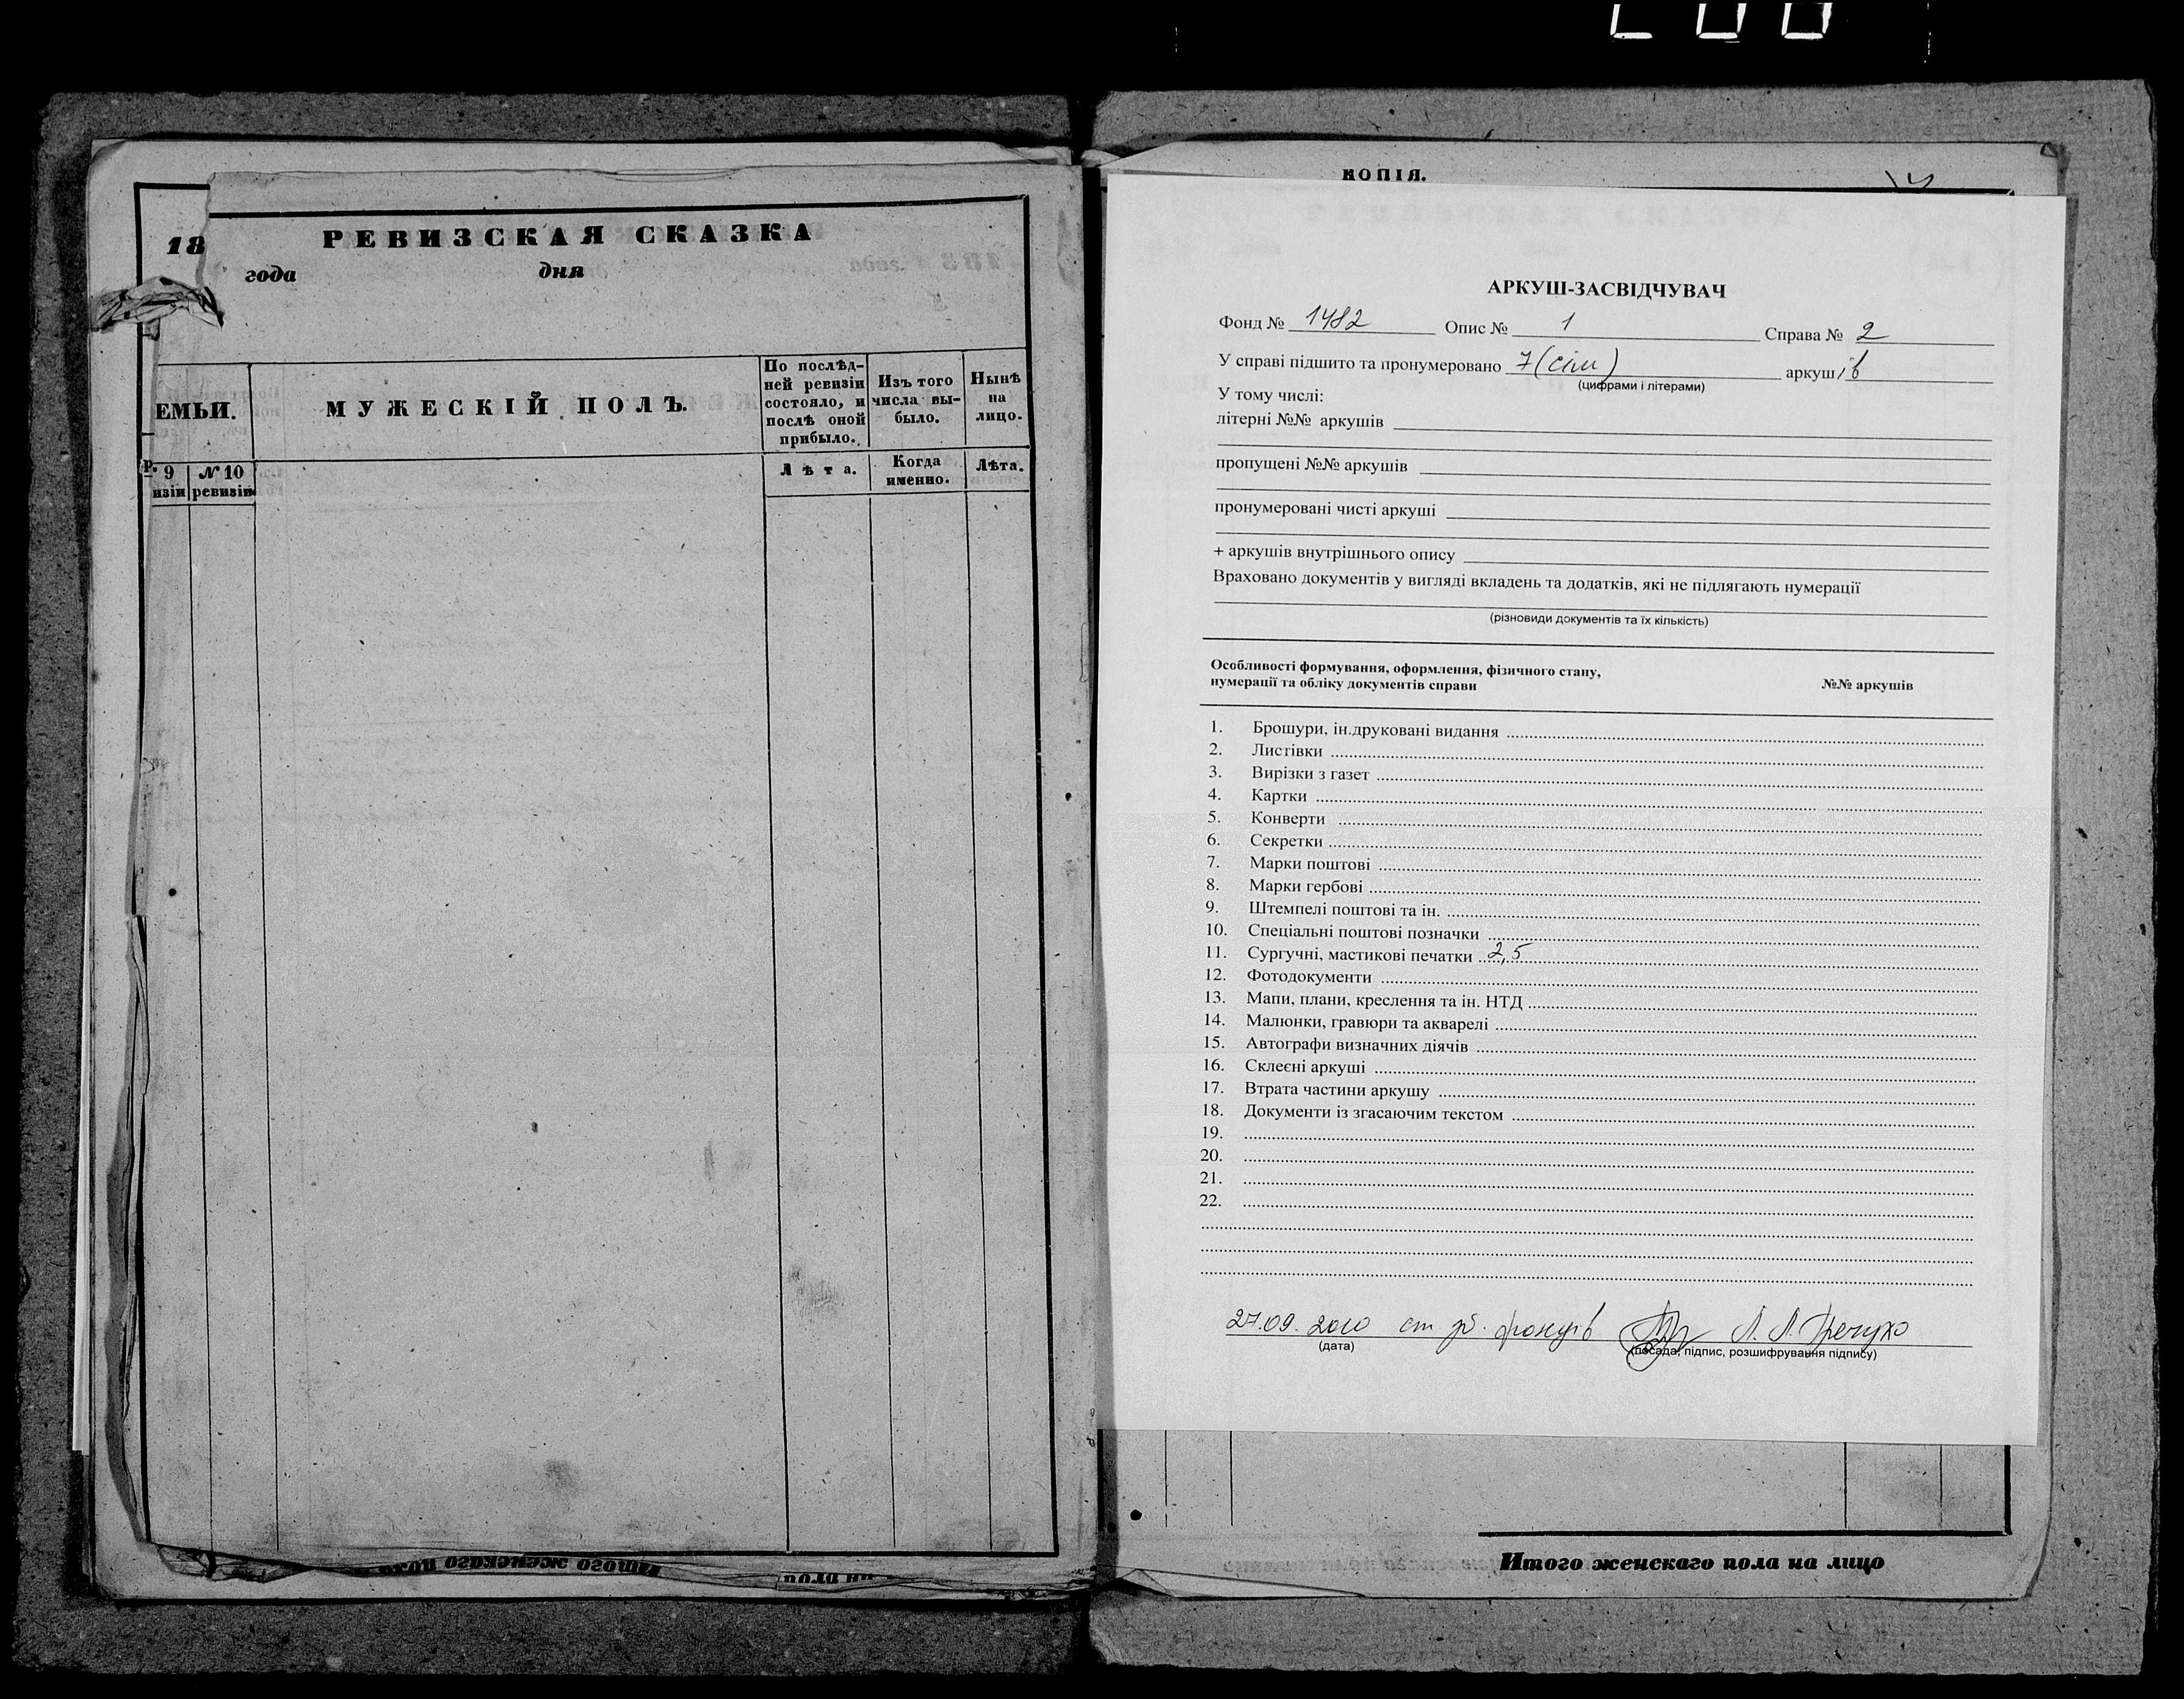 РЕВИЗСКАЯ СКАЗКА
18 года дня
ЕМЬИ.
МУЖЕСКІЙ ПОЛЪ.
По послѣд-
ней ревизіи
состояло, и
послѣ оной
прибыло.
Изъ того
числа вы-
было.
Нынѣ
на
лицо.
9
изіи
№ 10
ревизіи
Лѣта.
Когда
именно.
Лѣта.
КОПІЯ.
АРКУШ-ЗАСВІДЧУВАЧ
Фонд № 1482 Опис № 1 Справа № 2
У справі підшито та пронумеровано 7 (сім) аркушів
(цифрами і літерами)
У тому числі:
літерні №№ аркушів
пропущені №№ аркушів
пронумеровані чисті аркуші
+ аркушів внутрішнього опису
Враховано документів у вигляді вкладень та додатків, які не підлягають нумерації
(різновиди документів та їх кількість)
Особливості формування, оформлення, фізичного стану,
нумерації та обліку документів справи №№ аркушів
1. Брошури, ін.друковані видання
2. Листівки
3. Вирізки з газет
4. Картки
5. Конверти
6. Секретки
7. Марки поштові
8. Марки гербові
9. Штемпелі поштові та ін.
10. Спеціальні поштові позначки
11. Сургучні, мастикові печатки 2,5
12. Фотодокументи
13. Мапи, плани, креслення та ін. НТД
14. Малюнки, гравюри та акварелі
15. Автографи визначних діячів
16. Склеєні аркуші
17. Втрата частини аркушу
18. Документи із згасаючим текстом
19.
20.
21.
22.
27.09.2010 ст зб. фондів Л. Л.
(дата) (посада, підпис, розшифрування підпису)
Итого женскаго пола на лицо